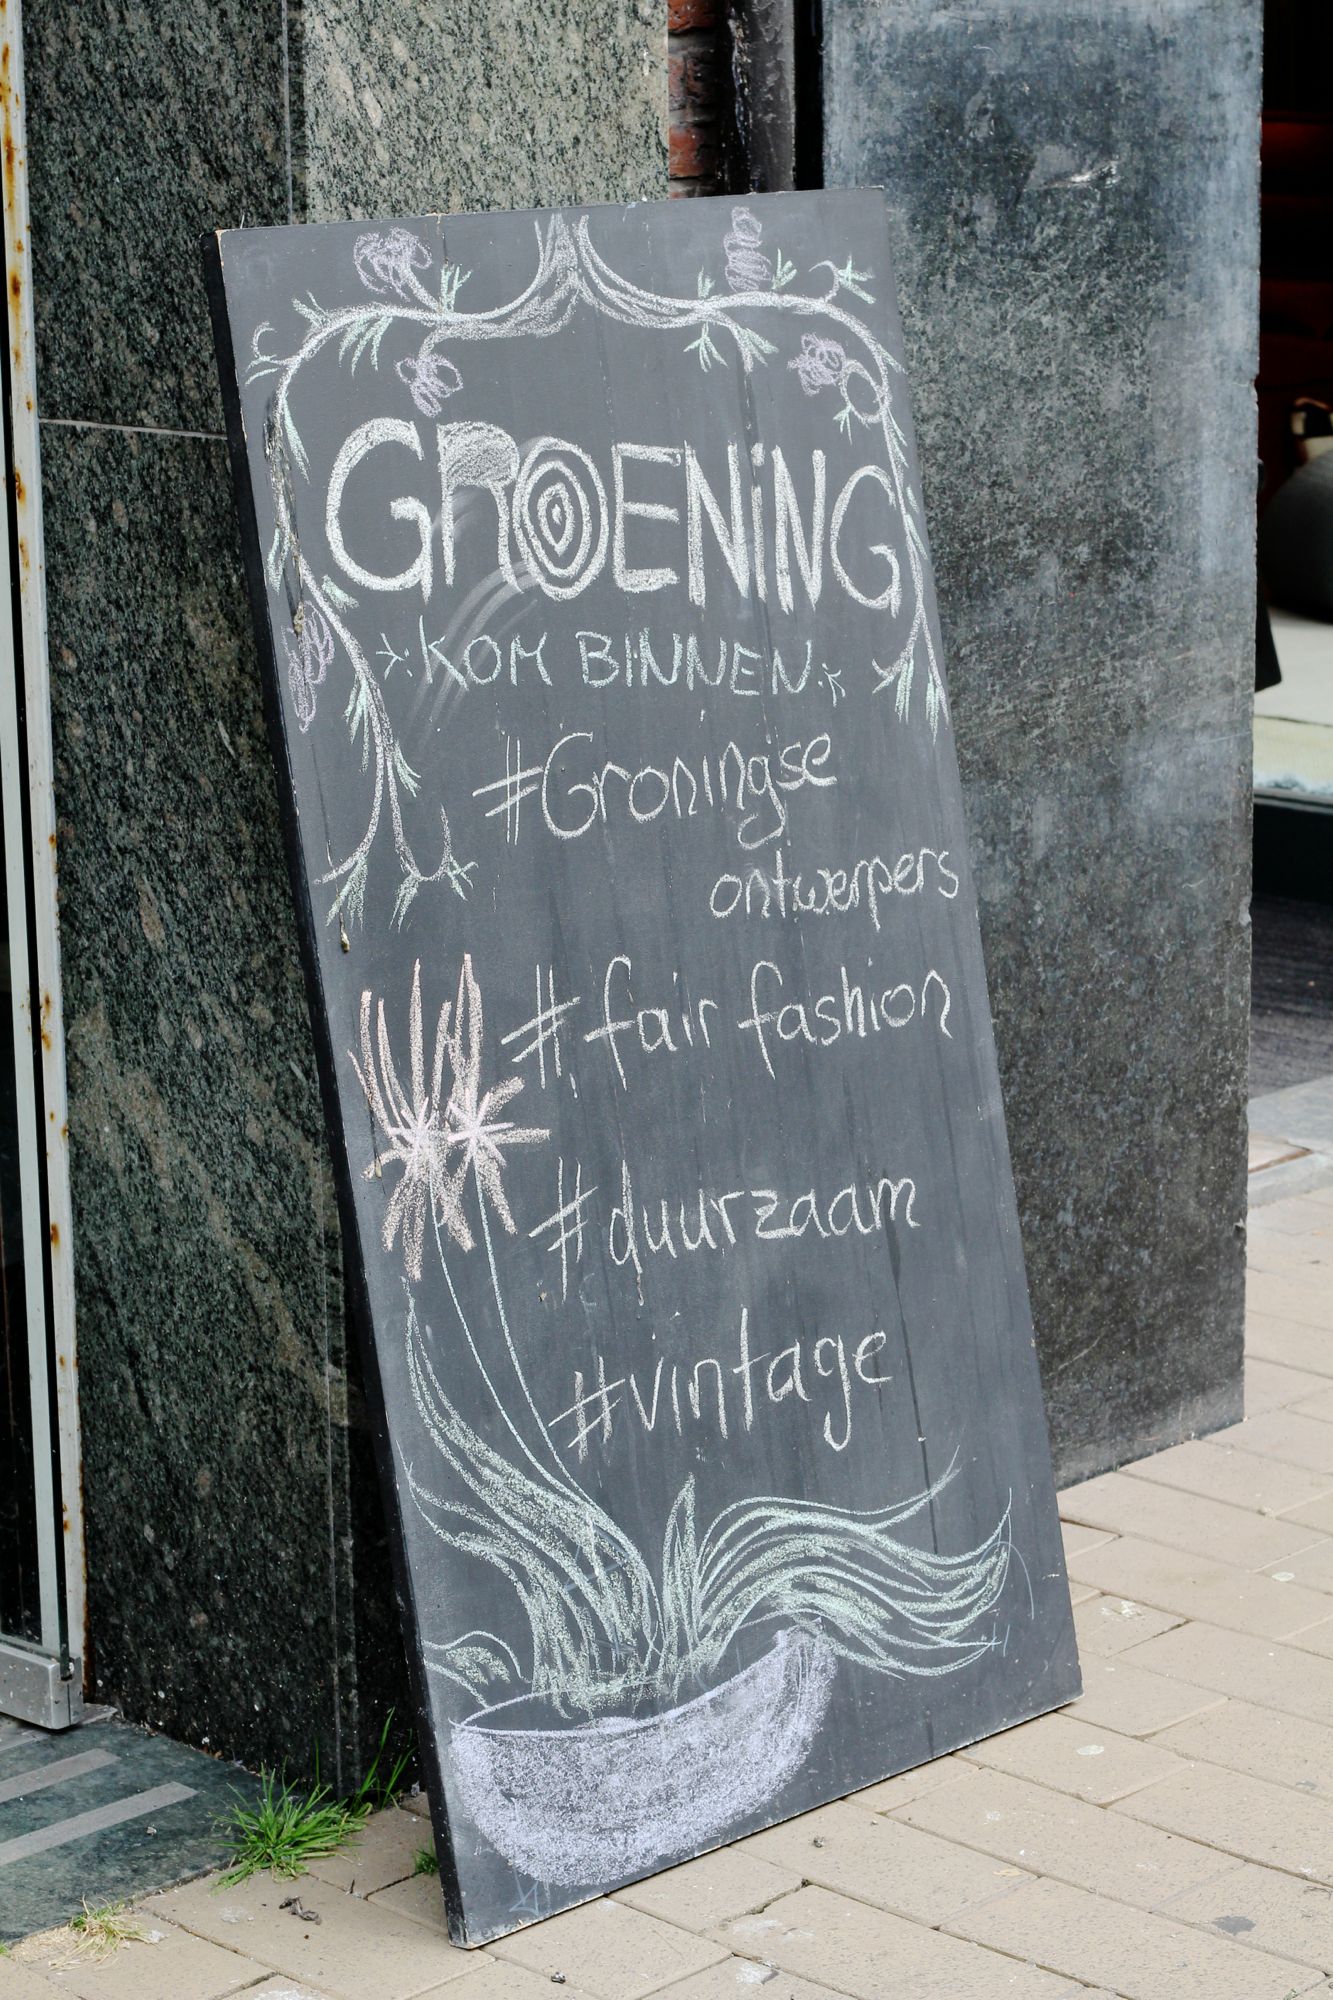 GROENiNG
KOM BINNEN
#Groningse
ontwerpers
#fair fashion
#duurzaam
#vintage